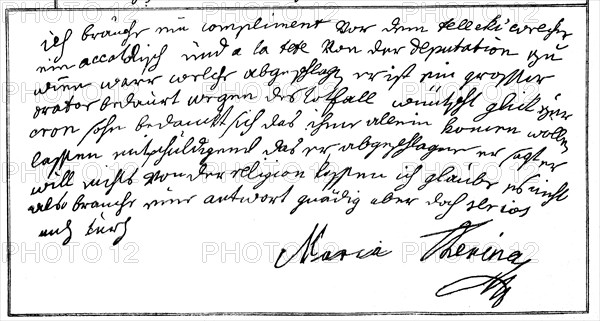 ich brauche ein compliment vor dem telleki welcher
ein accatolisch und a la tete von der deputation zu
wien ware welche abgeschlagen er ist ein grosser
orator bedaurt wegen des totfall wünscht glück zur
cron sohn bedanckt sich das ihme allein komen wollen
lassen entschuldigend das er abgeschlagen er sagt er
will nichts von der religion lassen ich glaube es nicht
also brauche eine antwort gnädig aber doch serios
und kurtz
Maria Theresia
PHOTO 12